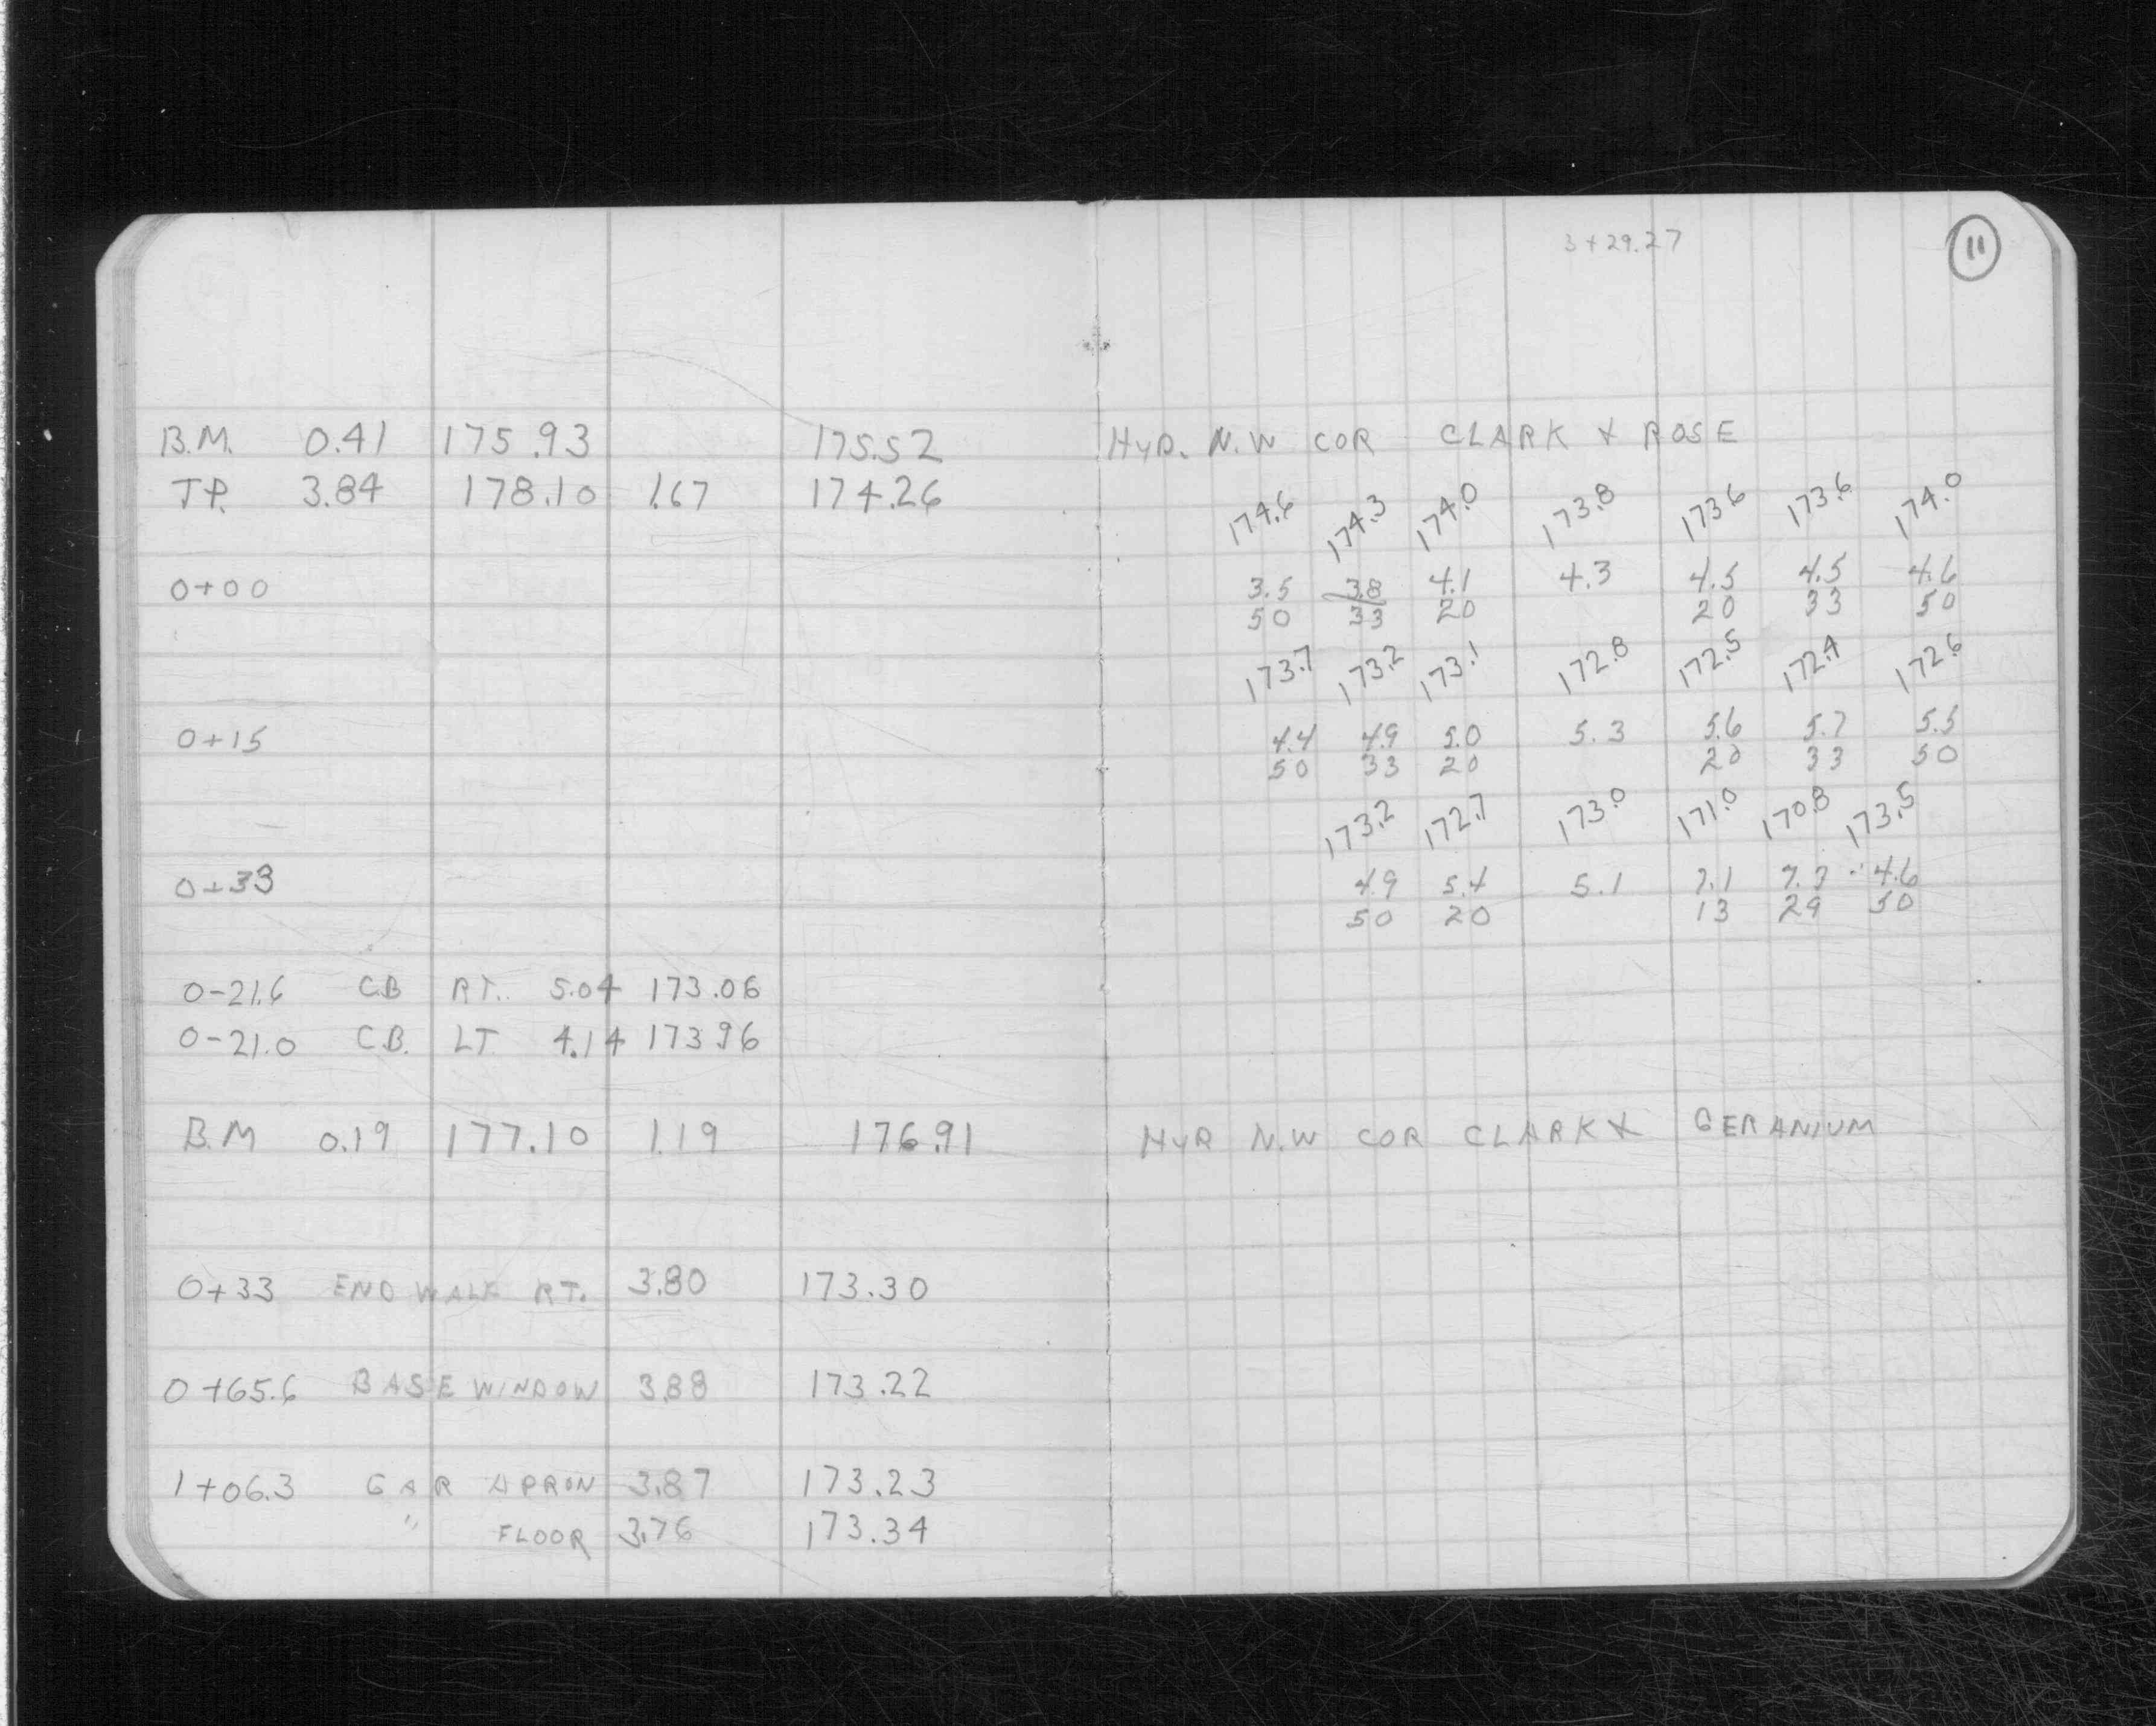 3+29.27
11
B.M. 0.41 175.93 175.52 HYD. N.W COR CLARK X ROSE
T.P. 3.84 178.10 1.67 174.26
174.6 174.3 174.0 173.8 173.6 173.6 174.0
0+00 3.5 3.8 4.1 4.3 4.5 4.5 4.6
50 33 20 20 33 50
173.7 173.2 173.1 172.8 172.5 172.4 172.6
0+15 4.4 4.9 5.0 5.3 5.6 5.7 5.5
50 33 20 20 33 50
173.2 172.7 173.0 171.0 170.8 173.5
0+33 4.9 5.4 5.1 7.1 7.3 4.6
50 20 13 29 50
0-21.6 C.B RT. 5.04 173.06
0-21.0 C.B. LT 4.14 173.96
B.M 0.19 177.10 1.19 176.91 HYR N.W COR CLARK X GERANIUM
0+33 END WALK RT. 3.80 173.30
0+65.6 BASE WINDOW 3.88 173.22
1+06.3 GAR APRON 3.87 173.23
" FLOOR 3.76 173.34